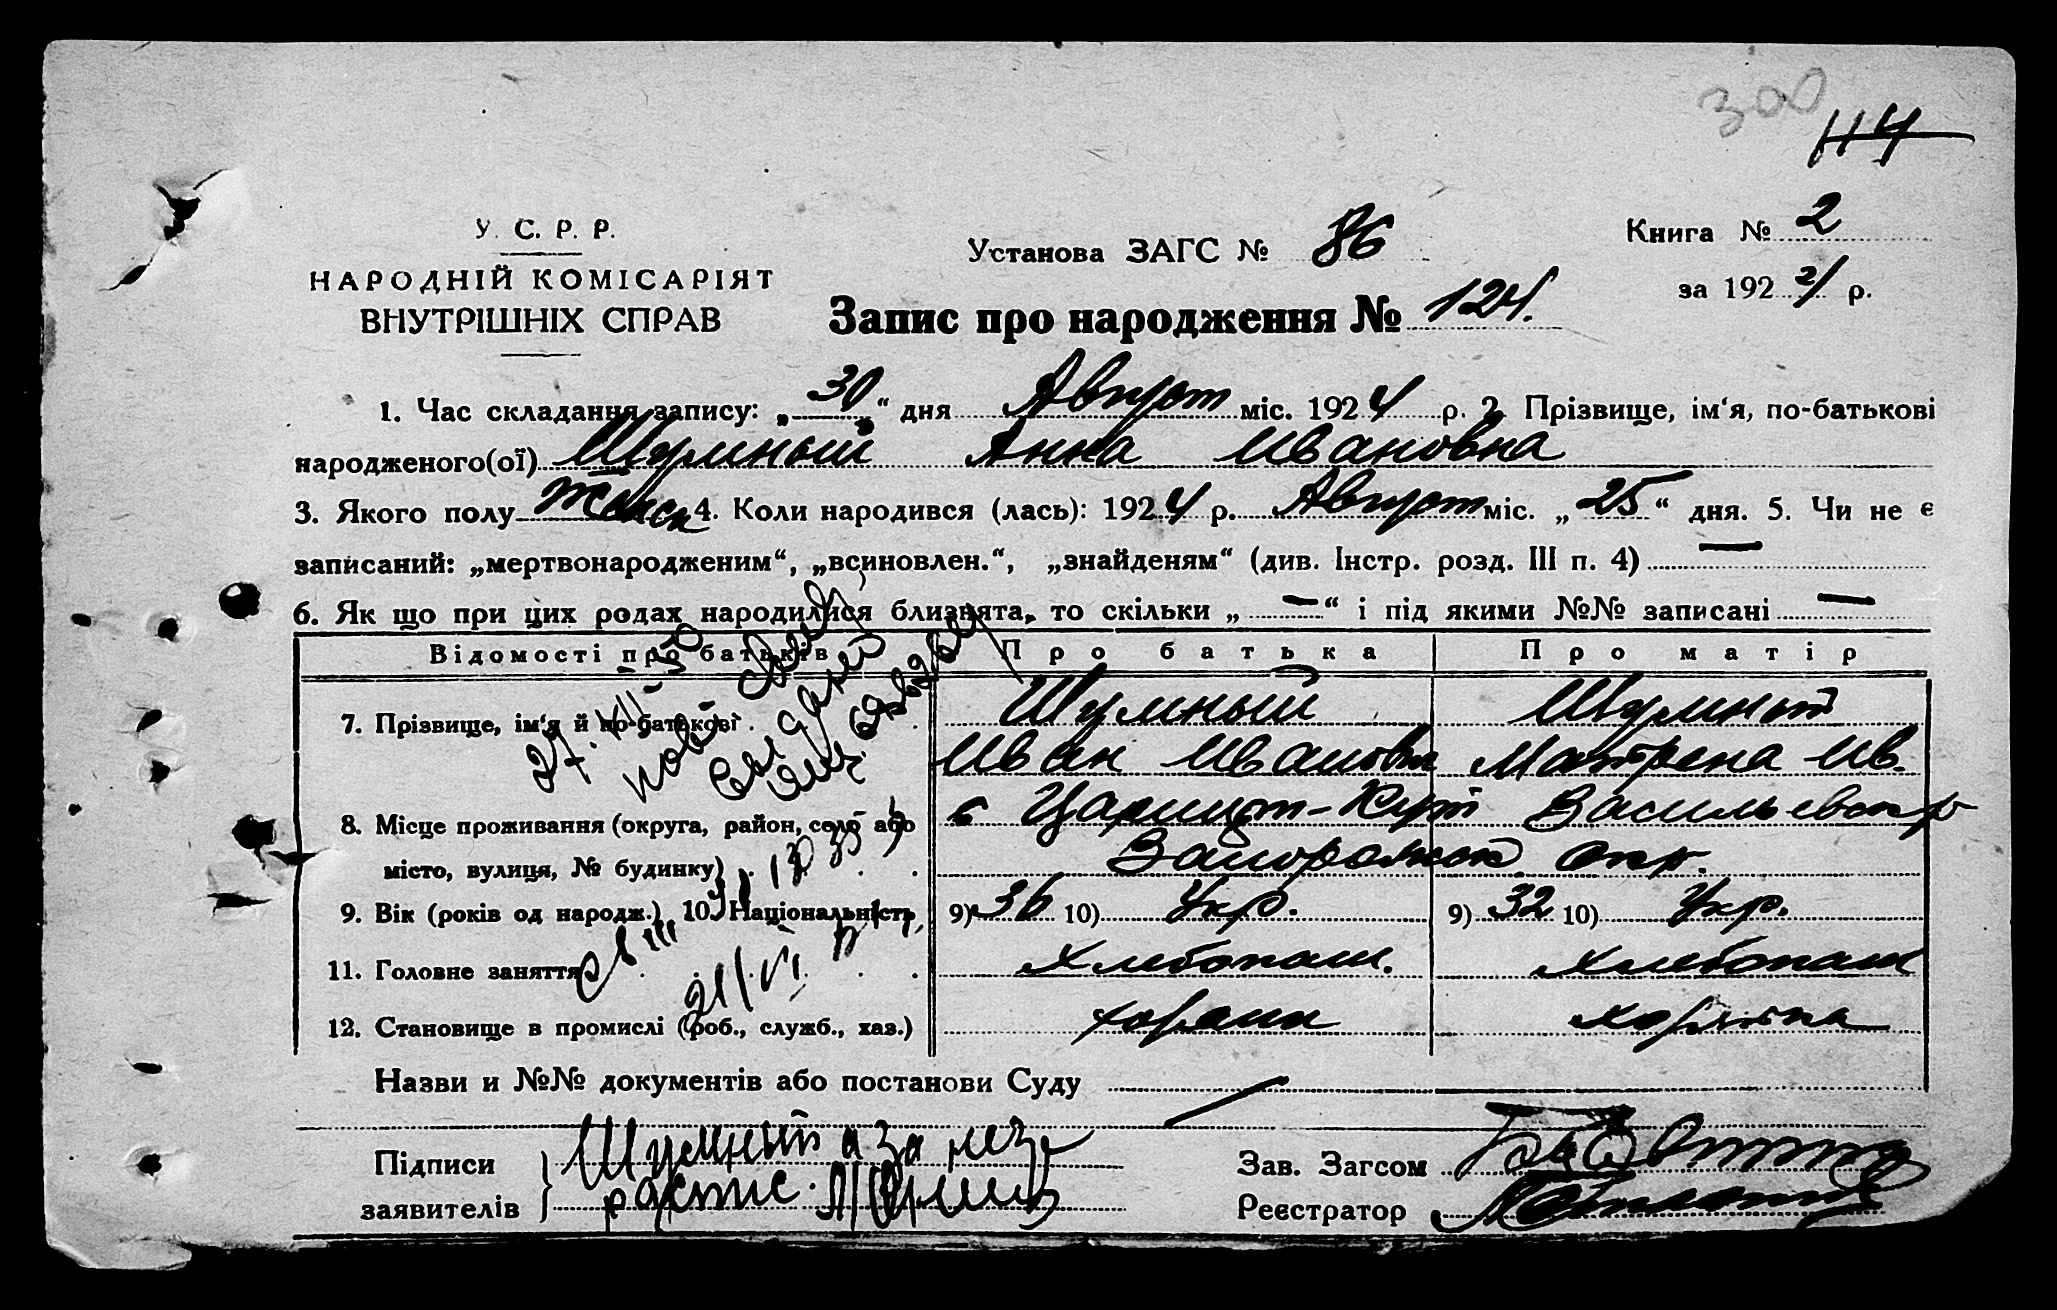 300
114
У. С. Р. Р.
НАРОДНІЙ КОМІСАРІЯТ
ВНУТРІШНІХ СПРАВ
Установа ЗАГС № 86
Книга № 2
за 1924 р.
Запис про народження № 124.
1. Час складання запису: „30“ дня Август міс. 1924 р. 2. Прізвище, ім‘я, по-батькові
народженого(ої) Шумный Анна Ивановна
3. Якого полу женск 4. Коли народився (лась): 1924 р. Август міс. „25“ дня. 5. Чи не є
записаний: „мертвонародженим“, „всиновлен.“, „знайденям“ (див. Інстр. розд. III п. 4) —
6. Як що при цих родах народилися близнята, то скільки „—“ і під якими №№ записані —
Відомості про батьків Про батька Про матір
7. Прізвище, ім‘я й по-батькові Шумный Шумный
Иван Иванович Матрена Ив.
8. Місце проживання (округа, район, село або с Царицын-Кут Васильевск р
місто, вулиця, № будинку) Запорожск окр.
9. Вік (років од народж.) 10. Національність 9) 36 10) Укр. 9) 32 10) Укр.
11. Головне заняття Хлебопаш. Хлебопаш
12. Становище в промислі (роб., служб., хаз.) хозяин хозяйка
Назви и №№ документів або постанови Суду
Підписи Шумный а за негр
заявителів распис.
Зав. Загсом
Реєстратор